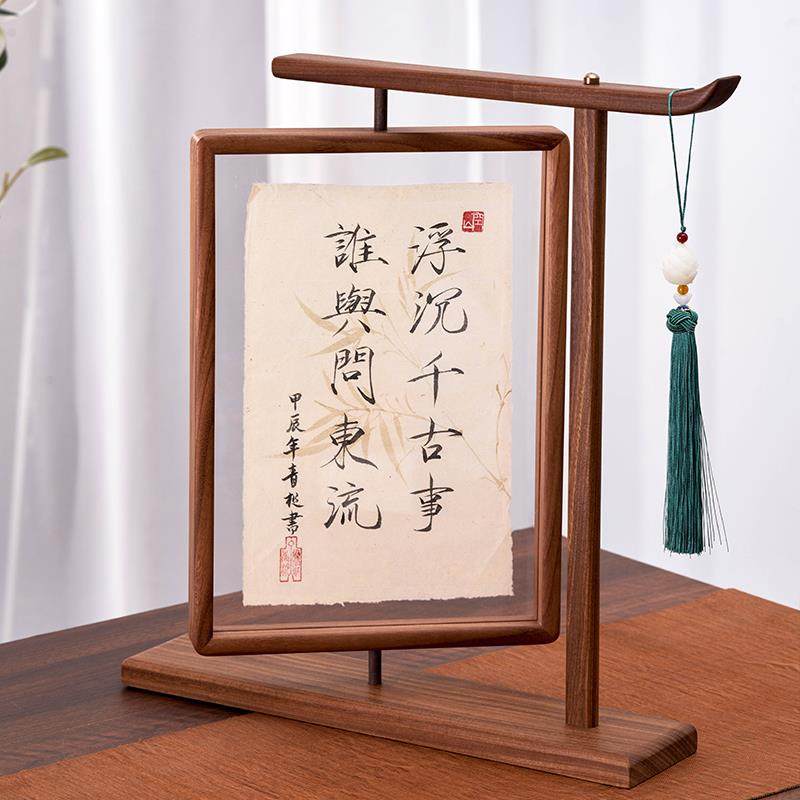 浮沉千古事
誰與問東流
甲辰年青桃書